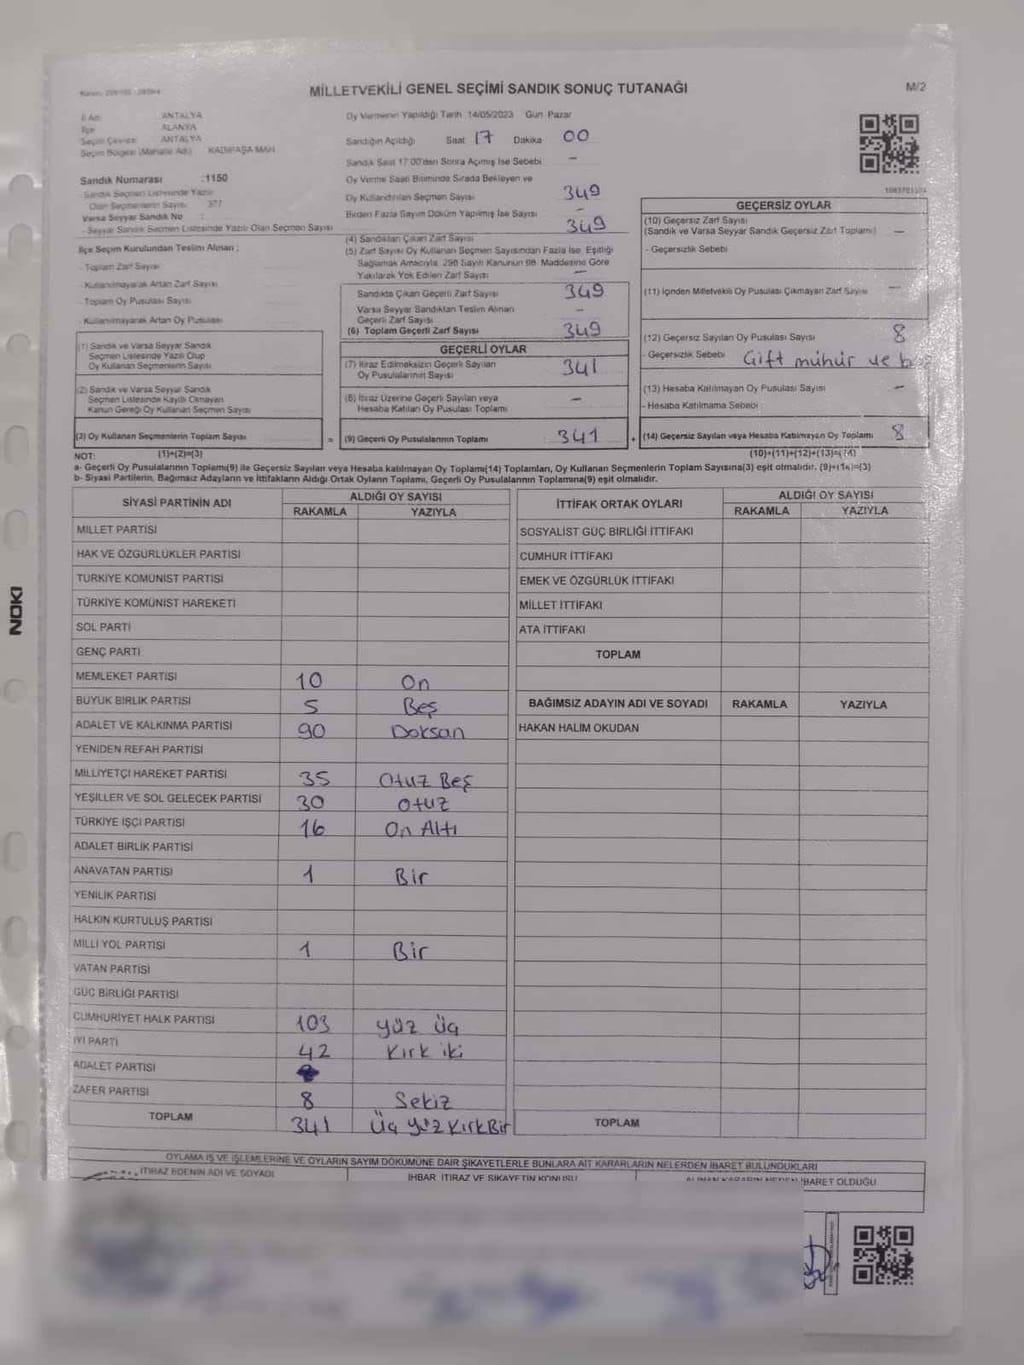 MİLLETVEKİLİ GENEL SEÇİMİ SANDIK SONUÇ TUTANAĞI
M/2
İl Adı : ANTALYA
İlçe : ALANYA
Seçim Çevresi : ANTALYA
Seçim Bölgesi (Mahalle Adı) :
Sandık Numarası :1150
- Sandık Seçmen Listesinde Yazılı
Olan Seçmenlerin Sayısı 377
Varsa Seyyar Sandık No :
- Seyyar Sandık Seçmen Listesinde Yazılı Olan Seçmen Sayısı
İlçe Seçim Kurulundan Teslim Alınan ;
- Toplam Zarf Sayısı
- Kullanılmayarak Artan Zarf Sayısı
- Toplam Oy Pusulası Sayısı
- Kullanılmayarak Artan Oy Pusulası
(1) Sandık ve Varsa Seyyar Sandık
Seçmen Listesinde Yazılı Olup
Oy Kullanan Seçmenlerin Sayısı
(2) Sandık ve Varsa Seyyar Sandık
Seçmen Listesinde Kayıtlı Olmayan
Kanun Gereği Oy Kullanan Seçmen Sayısı
(3) Oy Kullanan Seçmenlerin Toplam Sayısı
Oy Vermenin Yapıldığı Tarih 14/05/2023 Gün Pazar
Sandığın Açıldığı Saat 17 Dakika 00
Sandık Saat 17:00'den Sonra Açılmış İse Sebebi –
Oy Verme Saati Bitiminde Sırada Bekleyen ve
Oy Kullandırılan Seçmen Sayısı 349
Birden Fazla Sayım Döküm Yapılmış İse Sayısı –
349
(4) Sandıktan Çıkan Zarf Sayısı
(5) Zarf Sayısı Oy Kullanan Seçmen Sayısından Fazla İse, Eşitliği
Sağlamak Amacıyla, 298 Sayılı Kanunun 98. Maddesine Göre
Yakılarak Yok Edilen Zarf Sayısı –
Sandıkta Çıkan Geçerli Zarf Sayısı 349
Varsa Seyyar Sandıktan Teslim Alınan
Geçerli Zarf Sayısı –
(6) Toplam Geçerli Zarf Sayısı 349
GEÇERLİ OYLAR
(7) İtiraz Edilmeksizin Geçerli Sayılan
Oy Pusulalarının Sayısı 341
(8) İtiraz Üzerine Geçerli Sayılan veya
Hesaba Katılan Oy Pusulası Toplamı –
= (9) Geçerli Oy Pusulalarının Toplamı 341
GEÇERSİZ OYLAR
(10) Geçersiz Zarf Sayısı
(Sandık ve Varsa Seyyar Sandık Geçersiz Zarf Toplamı) –
- Geçersizlik Sebebi
(11) İçinden Milletvekili Oy Pusulası Çıkmayan Zarf Sayısı –
(12) Geçersiz Sayılan Oy Pusulası Sayısı 8
- Geçersizlik Sebebi Çift mühür ve
(13) Hesaba Katılmayan Oy Pusulası Sayısı –
- Hesaba Katılmama Sebebi
+ (14) Geçersiz Sayılan veya Hesaba Katılmayan Oy Toplamı 8
NOT: (1)+(2)=(3) (10)+(11)+(12)+(13)=(14)
a- Geçerli Oy Pusulalarının Toplamı(9) ile Geçersiz Sayılan veya Hesaba katılmayan Oy Toplamı(14) Toplamları, Oy Kullanan Seçmenlerin Toplam Sayısına(3) eşit olmalıdır. (9)+(14)=(3)
b- Siyasi Partilerin, Bağımsız Adayların ve İttifakların Aldığı Ortak Oyların Toplamı, Geçerli Oy Pusulalarının Toplamına(9) eşit olmalıdır.
SİYASİ PARTİNİN ADI ALDIĞI OY SAYISI
RAKAMLA YAZIYLA
MİLLET PARTİSİ
HAK VE ÖZGÜRLÜKLER PARTİSİ
TÜRKİYE KOMÜNİST PARTİSİ
TÜRKİYE KOMÜNİST HAREKETİ
SOL PARTİ
GENÇ PARTİ
MEMLEKET PARTİSİ 10 On
BÜYÜK BİRLİK PARTİSİ 5 Beş
ADALET VE KALKINMA PARTİSİ 90 Doksan
YENİDEN REFAH PARTİSİ
MİLLİYETÇİ HAREKET PARTİSİ 35 Otuz Beş
YEŞİLLER VE SOL GELECEK PARTİSİ 30 Otuz
TÜRKİYE İŞÇİ PARTİSİ 16 On Altı
ADALET BİRLİK PARTİSİ
ANAVATAN PARTİSİ 1 Bir
YENİLİK PARTİSİ
HALKIN KURTULUŞ PARTİSİ
MİLLİ YOL PARTİSİ 1 Bir
VATAN PARTİSİ
GÜÇ BİRLİĞİ PARTİSİ
CUMHURİYET HALK PARTİSİ 103 Yüz Üç
İYİ PARTİ 42 Kırk iki
ADALET PARTİSİ
ZAFER PARTİSİ 8 Sekiz
TOPLAM 341 Üç Yüz Kırk Bir
İTTİFAK ORTAK OYLARI ALDIĞI OY SAYISI
RAKAMLA YAZIYLA
SOSYALİST GÜÇ BİRLİĞİ İTTİFAKI
CUMHUR İTTİFAKI
EMEK VE ÖZGÜRLÜK İTTİFAKI
MİLLET İTTİFAKI
ATA İTTİFAKI
TOPLAM
BAĞIMSIZ ADAYIN ADI VE SOYADI RAKAMLA YAZIYLA
HAKAN HALİM OKUDAN
TOPLAM
OYLAMA İŞ VE İŞLEMLERİNE VE OYLARIN SAYIM DÖKÜMÜNE DAİR ŞİKAYETLERLE BUNLARA AİT KARARLARIN NELERDEN İBARET BULUNDUKLARI
İTİRAZ EDENİN ADI VE SOYADI
İHBAR, İTİRAZ VE ŞİKAYETİN KONUSU
ALINAN KARARIN NEDEN İBARET OLDUĞU
NOKI